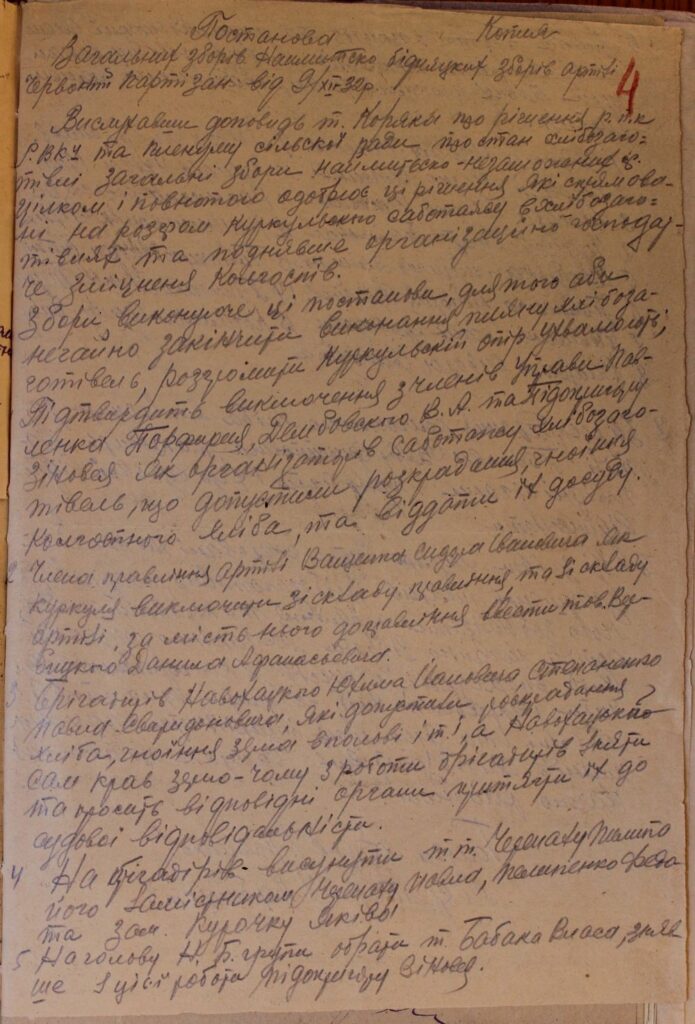 Постанова Копия
Загальних зборів Наймитсько бідняцких зборів артілі
Червоний Партизан від 9/XII 32р. 4
Вислухавши доповідь т. Коряки про рішення р.п.к
р.вку та пленуму сільської ради про стан хлібозаго=
тівлі загальні збори наймитсько-незаможних
цілком і повнотою одобрює ці рішення які спрямова-
ні на розгром куркульского саботажу в хлібозаго=
тівлях та поднявше організаційно господар-
че зміцнення колгоспів.
Збори, виконуюче ці постанови, для того аби
негайно закінчити виконання пляну хлібоза-
готівель, розгромити куркульский опір ухвалюють;
Підтвердить виключення з членів Управи Пав-
ленка Порфирия, Дембовского В.А. та Підопригору
Зіновея як організаторів саботажу хлібозаго-
тівель, що допустили розкрадання, гноїння
колгоспного хліба, та віддати іх до суду.
2 Члена правління артілі Ващенка Сидора Івановича як
куркуля виключити зі складу правління та зі складу
артілі, за мість нього до правління ввести тов. Вер-
бицкого Данила Афанасьевича.
3 Брігадирів Навохацкого Юхима Івановича Степаненко
Павла Спиридоновича, які допустили розкрадання
хліба, гноїння зерна в полові і т.і, а Навохацкий
сам крав зерно-чому з роботи брігадирів зняти
та просить відповідні органи притягти іх до
судової відповідальністи.
4 На брігадірів висунути т.т. Черепаху Пилипа
його замісником Черепаху Павла, Пилипенко Федо
та зам. Курочку Якова
5 На голову Н.Б. групи обрати т. Бабака Власа, зняв
ше з ціеї роботи Підопригору Зіновея.